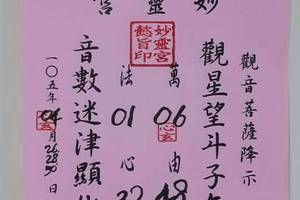 妙靈
觀音菩薩降示
觀星望斗子
萬 06 由 48
妙靈宮
懿旨印
法 01 心
音數迷津顯
一〇五年04月26.28.30日